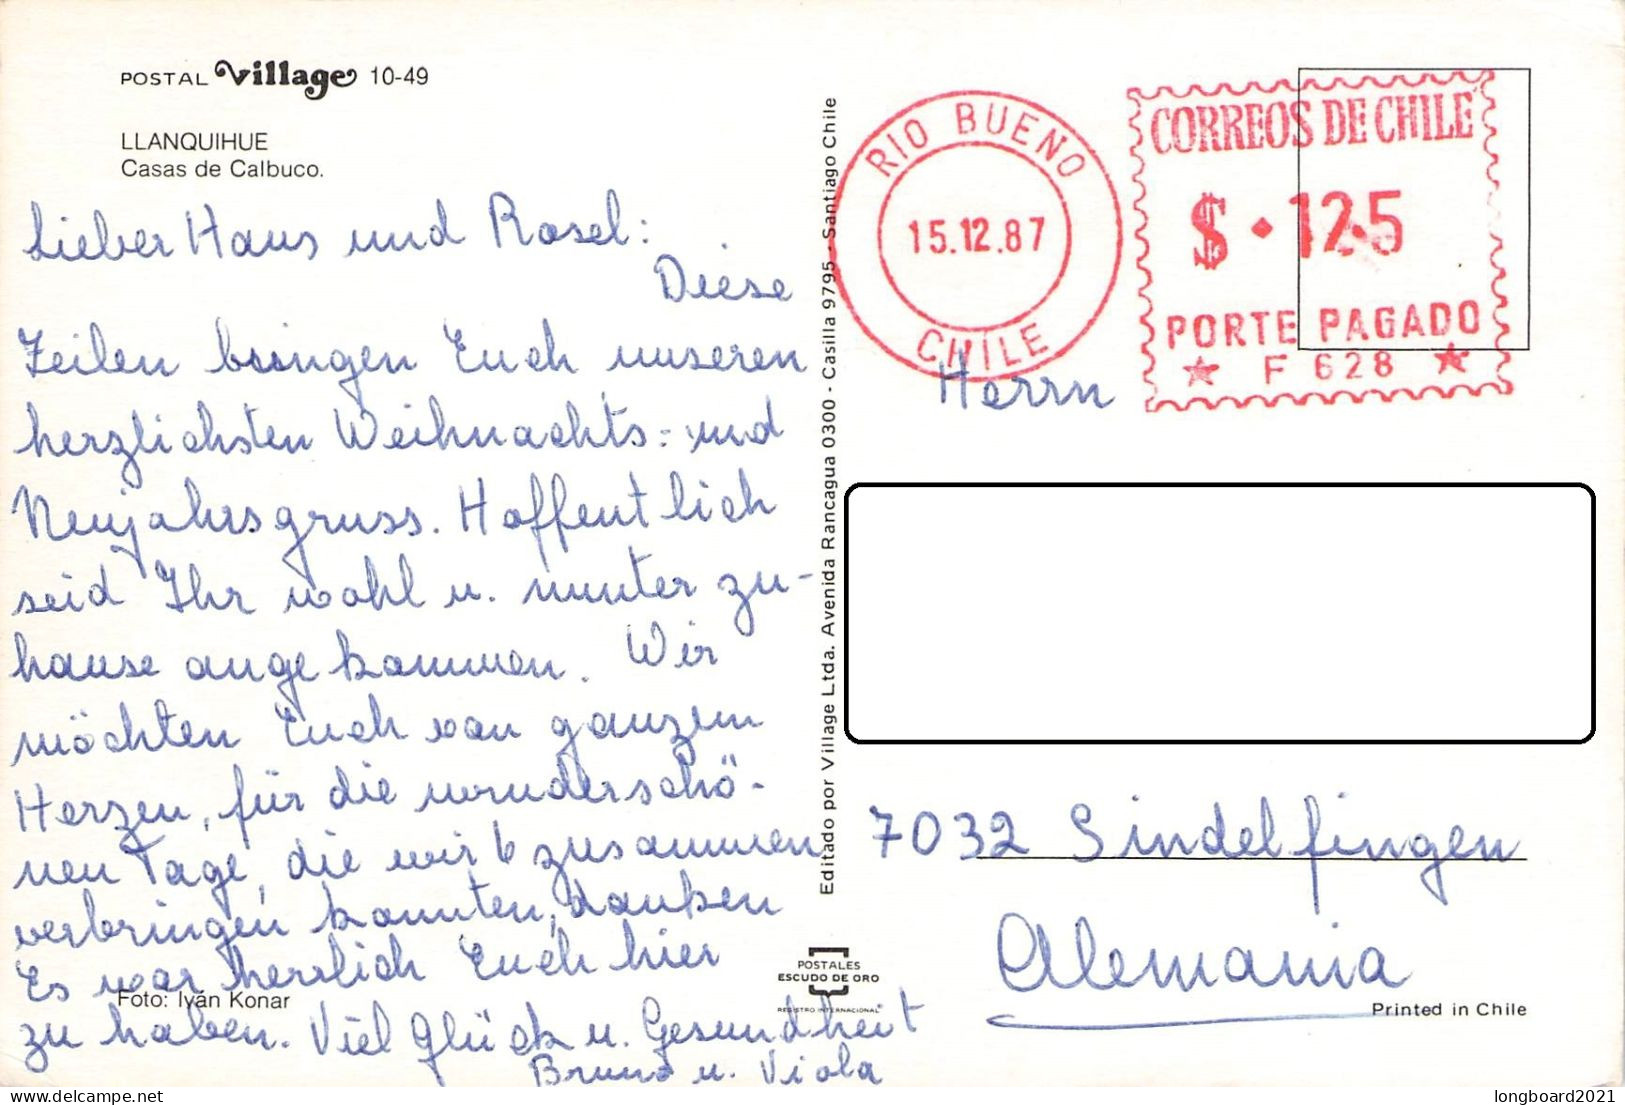 POSTAL Village 10-49
LLANQUIHUE
Casas de Calbuco.
Lieber Hans und Rosel:
Diese
Zeilen bringen Euch unseren
herzlichsten Weihnachts- und
Neujahrsgruss. Hoffentlich
seid Ihr wohl u. munter zu-
hause angekommen. Wir
möchten Euch von ganzem
Herzen, für die wunderschö-
nen Tage, die wir 6 zusammen
verbringen konnten, danken
Es war herrlich Euch hier
zu haben. Viel Glück u. Gesundheit
Bruno u. Viola
Foto: Iván Konar
Editado por Village Ltda. Avenida Rancagua 0300 - Casilla 9795 - Santiago Chile
POSTALES
ESCUDO DE ORO
REGISTRO INTERNACIONAL
RIO BUENO
15.12.87
CHILE
CORREOS DE CHILE
$ 125
PORTE PAGADO
F 628
Herrn
7032 Sindelfingen
Alemania
Printed in Chile
the-best-for-collectors.com
longboard2021